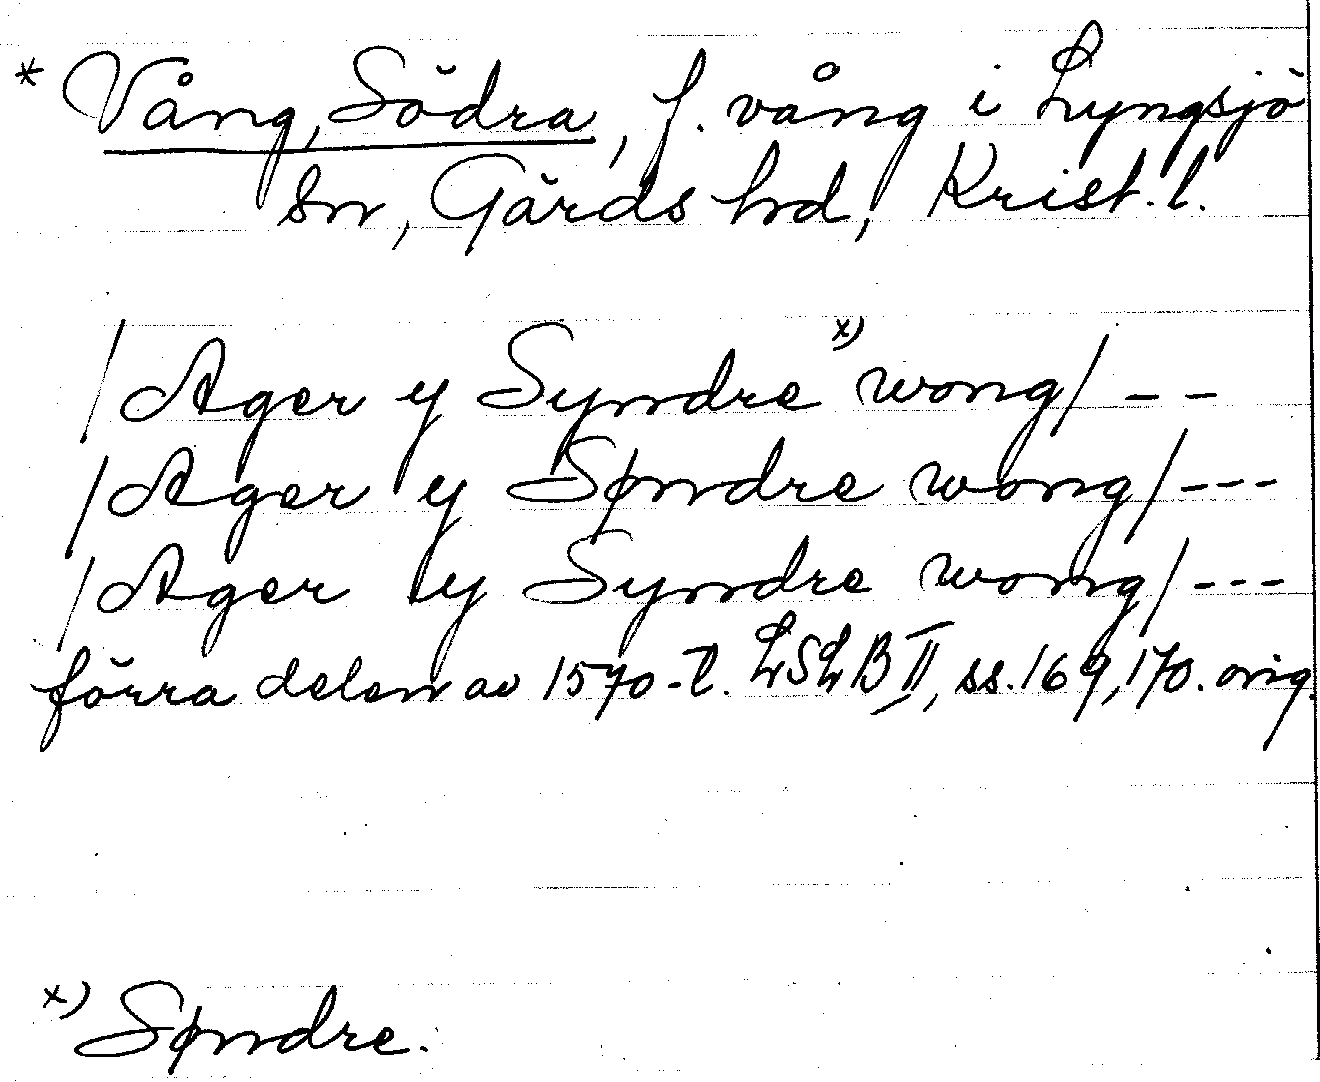 * Vång, Södra, f. vång i Lyngsjö
sn, Gärds hrd, Krist. l.
/Ager y Syndre x) wong/ - -
/Ager y Søndre wong/ - - -
/Ager y Syndre wong/ - - -
förra delen av 1570-t. LSLB II, ss. 169, 170. orig.
x) Søndre.